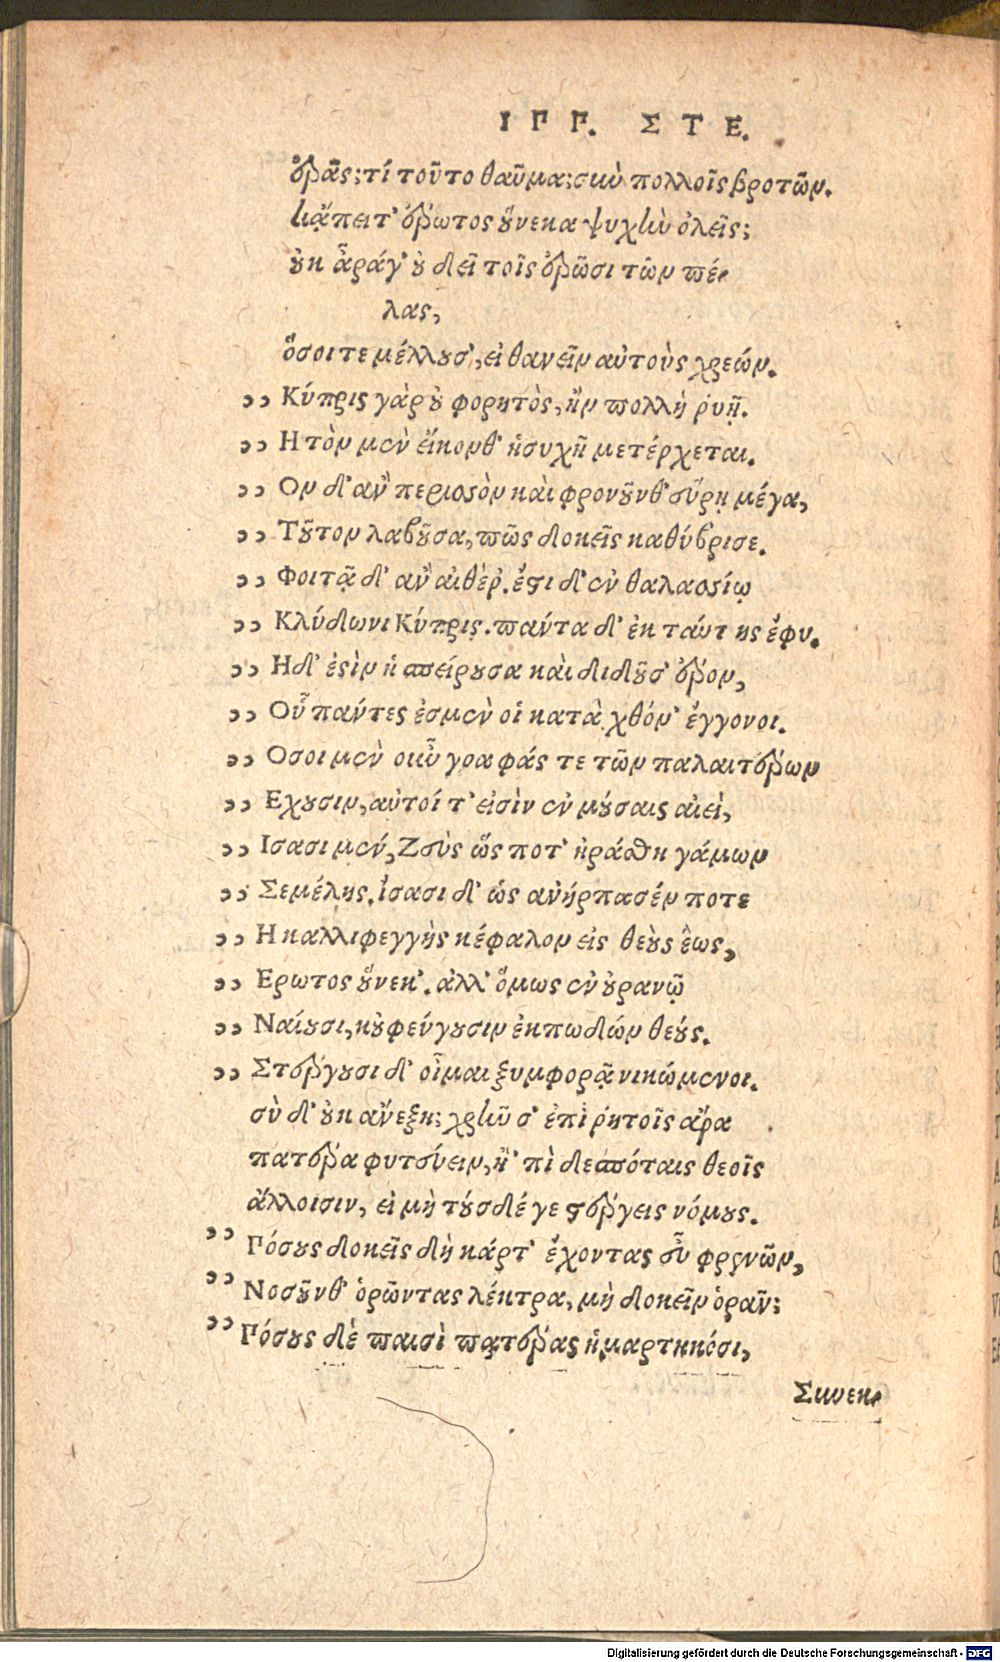 ΙΠΠ. ΣΤΕ.
ἐρᾷς; τί τοῦτο θαῦμα; σὺν πολλοῖς βροτῶν.
κᾄπειτ' ἔρωτος οὕνεκα ψυχὴν ὀλεῖς;
οὐκ ἆρά γ' οὐ δεῖ τοῖς ἐρῶσι τῶν πέ-
λας,
ὅσοι τε μέλλουσ', εἰ θανεῖν αὐτοὺς χρεών.
,, Κύπρις γὰρ οὐ φορητὸς, ἢν πολλὴ ῥυῇ.
,, Η τὸν μὲν εἴκονθ' ἡσυχῆ μετέρχεται.
,, Ον δ' ἂν περισσὸν καὶ φρονοῦνθ' εὕρῃ μέγα,
,, Τοῦτον λαβοῦσα, πῶς δοκεῖς καθύβρισε.
,, Φοιτᾷ δ' ἀν' αἰθέρ'. ἔστι δ' ἐν θαλασσίῳ
,, Κλύδωνι Κύπρις. πάντα δ' ἐκ ταύτης ἔφυ.
,, Ηδ' ἐστὶν ἡ σπείρουσα καὶ διδοῦσ' ἔρον,
,, Οὗ πάντες ἐσμὲν οἱ κατὰ χθόν' ἔγγονοι.
,, Οσοι μὲν οὖν γραφάς τε τῶν παλαιτέρων
,, Εχουσιν, αὐτοί τ' εἰσὶν ἐν μούσαις αἰεὶ,
,, Ισασι μὲν, Ζεὺς ὥς ποτ' ἠράσθη γάμων
,, Σεμέλης. ἴσασι δ' ὡς ἀνήρπασέν ποτε
,, Η καλλιφεγγὴς κέφαλον εἰς θεοὺς ἕως,
,, Ερωτος οὕνεκ'. ἀλλ' ὅμως ἐν οὐρανῷ
,, Ναίουσι, κοὐ φεύγουσιν ἐκποδών θεούς.
,, Στέργουσι δ' οἶμαι ξυμφορᾷ νικώμενοι.
σὺ δ' οὐκ ἀνέξῃ; χρῆν σ' ἐπὶ ῥητοῖς ἄρα
πατέρα φυτεύειν, ἢ 'πὶ δεσπόταις θεοῖς
ἄλλοισιν, εἰ μὴ τούσδέ γε στέργεις νόμους.
,, Πόσους δοκεῖς δὴ κάρτ' ἔχοντας εὖ φρενῶν,
,, Νοσοῦνθ' ὁρῶντας λέκτρα, μὴ δοκεῖν ὁρᾶν;
,, Πόσους δὲ παισὶ πατέρας ἡμαρτηκόσι,
Συνεκ-
Digitalisierung gefördert durch die Deutsche Forschungsgemeinschaft - DFG